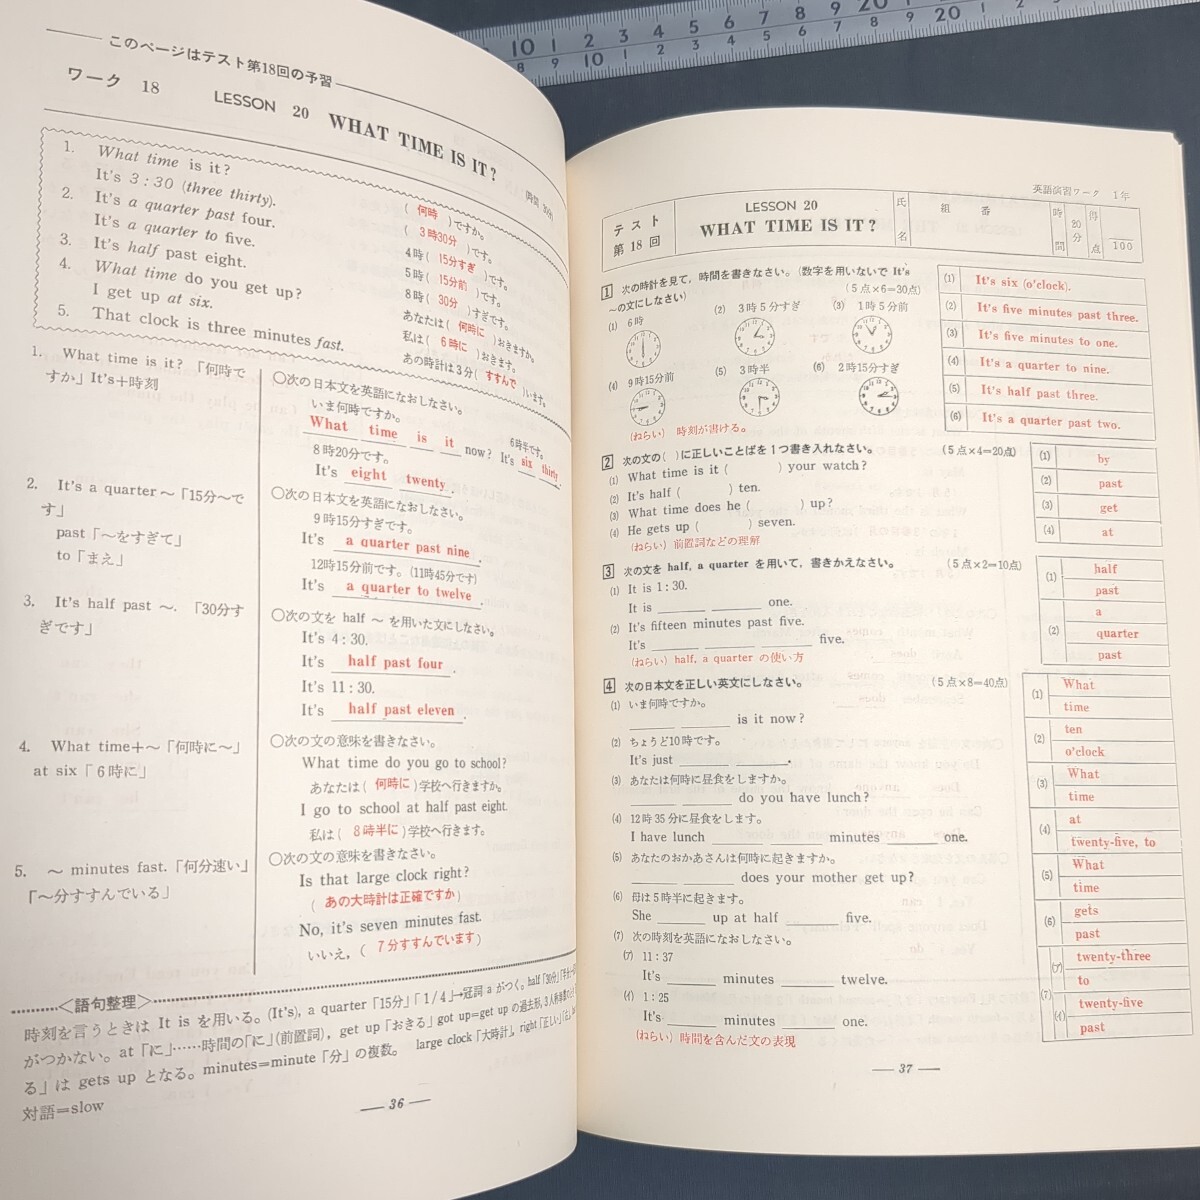 このページはテスト第18回の予習
ワーク 18 LESSON 20 WHAT TIME IS IT?
(時間 30分)
1. What time is it? ( 何時 )ですか。
It's 3:30 (three thirty). ( 3時30分 )です。
2. It's a quarter past four. 4時( 15分すぎ )です。
It's a quarter to five. 5時( 15分前 )です。
3. It's half past eight. 8時( 30分 )すぎです。
4. What time do you get up? あなたは( 何時に )おきますか。
I get up at six. 私は( 6時に )おきます。
5. That clock is three minutes fast. あの時計は3分( すすんで )います。
1. What time is it?「何時ですか」It's+時刻
○次の日本文を英語になおしなさい。
いま何時ですか。 6時半です。
What time is it now? It's six thirty.
8時20分です。
It's eight twenty.
2. It's a quarter～「15分～です」
past「～をすぎて」
to「まえ」
○次の日本文を英語になおしなさい。
9時15分すぎです。
It's a quarter past nine.
12時15分前です。(11時45分です)
It's a quarter to twelve.
3. It's half past ～.「30分すぎです」
○次の文を half ～ を用いた文にしなさい。
It's 4:30.
It's half past four.
It's 11:30.
It's half past eleven.
4. What time+～「何時に～」
at six「6時に」
○次の文の意味を書きなさい。
What time do you go to school?
あなたは( 何時に )学校へ行きますか。
I go to school at half past eight.
私は( 8時半に )学校へ行きます。
5. ～ minutes fast.「何分速い」
「～分すすんでいる」
○次の文の意味を書きなさい。
Is that large clock right?
( あの大時計は正確ですか )
No, it's seven minutes fast.
いいえ,( 7分すすんでいます )
<語句整理>
時刻を言うときは It is を用いる。(It's), a quarter「15分」「1/4」→冠詞 a がつく。half「30分」
がつかない。at「に」……時間の「に」(前置詞), get up「おきる」got up=get up の過去形,
る」は gets up となる。minutes=minute「分」の複数。 large clock「大時計」, right「正しい」
対語=slow
— 36 —
英語演習ワーク 1年
テスト 第18回 LESSON 20 WHAT TIME IS IT? 氏名 組 番 時間 20分 得点 100
1 次の時計を見て,時間を書きなさい。(数字を用いないで It's ～の文にしなさい) (5点×6=30点)
(1) 6時 (2) 3時5分すぎ (3) 1時5分前
(4) 9時15分前 (5) 3時半 (6) 2時15分すぎ
(ねらい) 時刻が書ける。
(1) It's six (o'clock).
(2) It's five minutes past three.
(3) It's five minutes to one.
(4) It's a quarter to nine.
(5) It's half past three.
(6) It's a quarter past two.
2 次の文の( )に正しいことばを1つ書き入れなさい。 (5点×4=20点)
(1) What time is it ( ) your watch?
(2) It's half ( ) ten.
(3) What time does he ( ) up?
(4) He gets up ( ) seven.
(ねらい) 前置詞などの理解
(1) by
(2) past
(3) get
(4) at
3 次の文を half, a quarter を用いて,書きかえなさい。 (5点×2=10点)
(1) It is 1:30.
It is ______ ______ one.
(2) It's fifteen minutes past five.
It's ______ ______ ______ five.
(ねらい) half, a quarter の使い方
(1) half
past
(2) a
quarter
past
4 次の日本文を正しい英文にしなさい。 (5点×8=40点)
(1) いま何時ですか。
______ ______ is it now?
(2) ちょうど10時です。
It's just ______ ______.
(3) あなたは何時に昼食をしますか。
______ ______ do you have lunch?
(4) 12時35分に昼食をします。
I have lunch ______ ______ minutes ______ one.
(5) あなたのおかあさんは何時に起きますか。
______ ______ does your mother get up?
(6) 母は5時半に起きます。
She ______ up at half ______ five.
(7) 次の時刻を英語になおしなさい。
(ア) 11:37
It's ______ minutes ______ twelve.
(イ) 1:25
It's ______ minutes ______ one.
(ねらい) 時間を含んだ文の表現
(1) What
time
(2) ten
o'clock
(3) What
time
(4) at
twenty-five, to
(5) What
time
(6) gets
past
(7) (ア) twenty-three
to
(イ) twenty-five
past
— 37 —